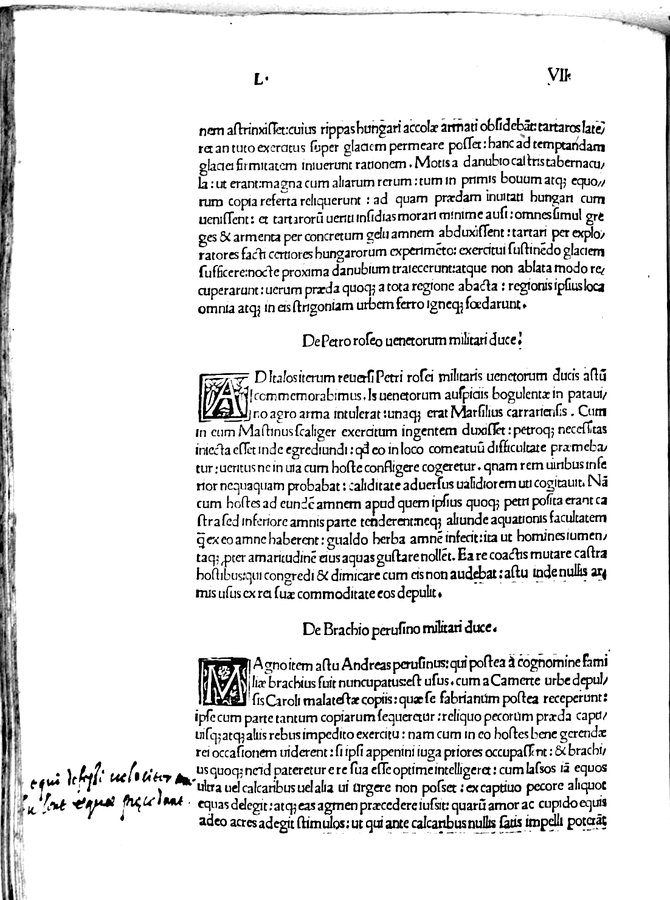 L. VII
nem astrinxisset:cuius rippas hungari accolæ armati obsidebāt:tartaros late/
re: an tuto exercitus super glaciem permeare posset: hanc ad temptandam
glaciei firmitatem inierunt rationem. Motis a danubio castris tabernacu/
la: ut erant:magna cum aliarum rerum: tum in primis bouum atq; equo//
rum copia referta reliquerunt: ad quam prædam inuitati hungari cum
uenissent: et tartarorū ueriti insidias morari minime ausi: omnes simul gre
ges & armenta per concretum gelu amnem abduxissent: tartari per explo/
ratores facti certiores hungarorum experimēto: exercitui sustinēdo glaciem
sufficere:nocte proxima danubium traiecerunt:atque non ablata modo re/
cuperarunt: uerum præda quoq; a tota regione abacta: regionis ipsius loca
omnia atq; in eis strigoniam urbem ferro igneq; fœdarunt.
De Petro roseo uenetorum militari duce.
AD Italos iterum reuersi Petri rosei militaris uenetorum ducis astū
commemorabimus. Is uenetorum auspiciis bogulentæ in pataui/
no agro arma intulerat: unaq; erat Marsilius carrariensis. Cum
in eum Mastinus scaliger exercitum ingentem duxisset: petroq; necessitas
iniecta esset inde egrediundi: qđ eo in loco comeatuū difficultate præmeba/
tur: ueritus ne in uia cum hoste confligere cogeretur. quam rem uiribus infe
rior nequaquam probabat: caliditate aduersus ualidiorem uti cogitauit. Nā
cum hostes ad eundē amnem apud quem ipsius quoq; petri posita erant ca
stra sed inferiore amnis parte tenderent:neq; aliunde aquationis facultatem
q̄ ex eo amne haberent: gualdo herba amnē infecit: ita ut homines iumen/
taq; ,pter amaritudinē eius aquas gustare nollēt. Ea re coactis mutare castra
hostibus:qui congredi & dimicare cum eis non audebat: astu inde nullis ar/
mis usus ex rei suæ commoditate eos depulit.
De Brachio perusino militari duce.
MAgno item astu Andreas perusinus: qui postea a cognomine fami
liæ brachius fuit nuncupatus:est usus. cum a Camerte urbe depul/
sis Caroli malatestæ copiis: quæ se fabrianum postea receperunt:
ipse cum parte tantum copiarum sequeretur: reliquo pecorum præda capti/
uisq; atq; aliis rebus impedito exercitu: nam cum in eo hostes bene gerendæ
rei occasionem uiderent: si ipsi appenini iuga priores occupassent: & brachi/
us quoq; ne id pateretur e re sua esse optime intelligeret: cum lassos iā equos
ultra uel calcaribus uel alia ui urgere non posset: ex captiuo pecore aliquot
equas delegit: atq; eas agmen præcedere iussit: quarū amor ac cupido equis
adeo acres adegit stimulos: ut qui ante calcaribus nullis satis impelli poterāt
equi defessi uelociter
sunt equas